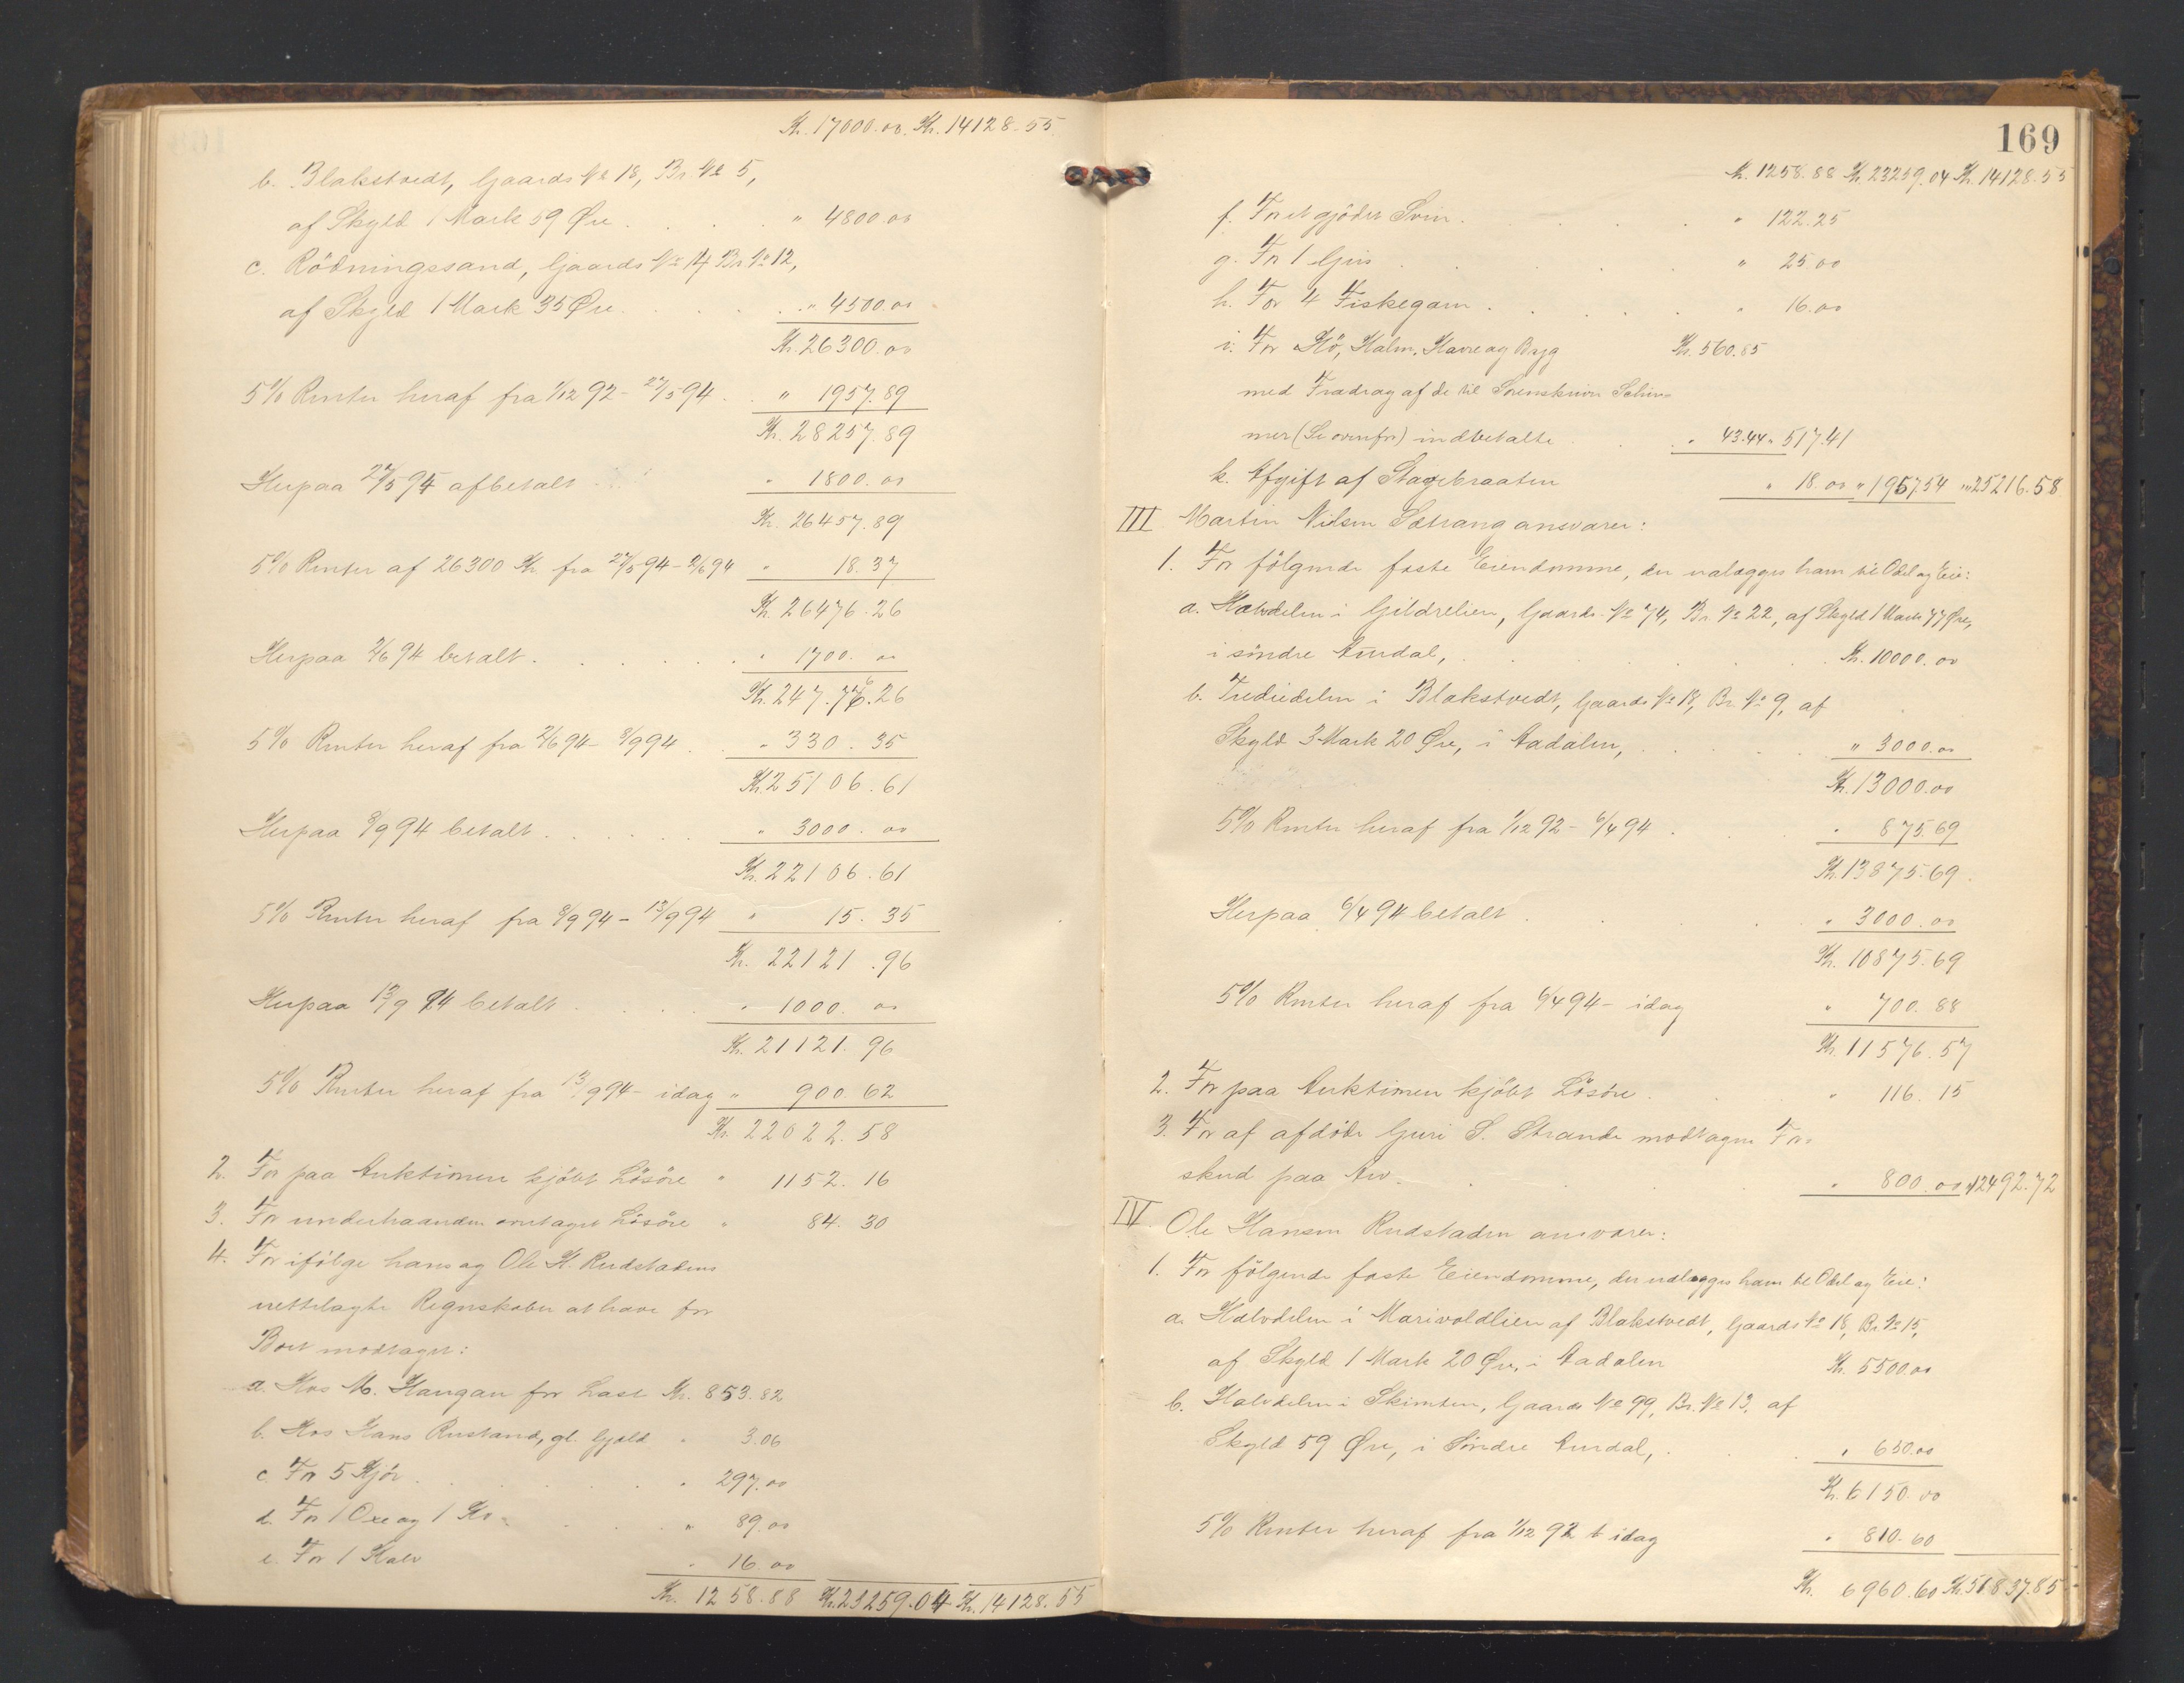 Kr. 17000.00. Kr. 14128.55.
b. Blakstvedt, Gaards No 18, Br. No 5,
af Skyld 1 Mark 59 Øre . . . " 4800.00
c. Rödningssand, Gaards No 14 Br. No 12,
af Skyld 1 Mark 35 Øre . . . " 4500.00
Kr. 26300.00
5% Renter heraf fra 1/12 92 - 27/5 94 . . " 1957.89
Kr. 28257.89
Herpaa 27/5 94 afbetalt . . " 1800.00
Kr. 26457.89
5% Renter af 26300 Kr. fra 27/5 94 - 2/6 94 " 18.37
Kr. 26476.26
Herpaa 2/6 94 betalt . . . " 1700.00
Kr. 24776.26
5% Renter heraf fra 2/6 94 - 8/9 94 . . " 330.35
Kr. 25106.61
Herpaa 8/9 94 betalt . . . " 3000.00
Kr. 22106.61
5% Renter heraf fra 8/9 94 - 13/9 94 " 15.35
Kr. 22121.96
Herpaa 13/9 94 betalt . . . " 1000.00
Kr. 21121.96
5% Renter heraf fra 13/9 94 - idag " 900.62
Kr. 22022.58
2. For paa Auktionen kjöbt Lösöre " 1152.16
3. For underhaanden overtaget Lösöre " 84.30
4. For ifölge hans og Ole H. Rudstadens
rettelagte Regnskaber at have for
Boet modtaget:
a. Hos M. Haugan for Last Kr. 853.82
b. Hos Hans Rustand, gl. Gjæld " 3.06
c. For 5 Kjör . . . " 297.00
d. For 1 Oxe og 1 Ko . . . " 89.00
e. For 1 Kalv " 16.00
Kr. 1258.88 Kr. 23259.04 Kr. 14128.55
169
Kr. 1258.88 Kr. 23259.04 Kr. 14128.55
f. For et gjödet Svin . . . " 122.25
g. For 1 Gris . . . " 25.00
h. For 4 Fiskegarn . . . " 16.00
i. For Hö, Halm, Havre og Byg Kr. 560.85
med Fradrag af de til Sorenskriver Schive
mer (Se ovenfor) indbetalte . . " 43.44 " 517.41
k. Afgift af Stagebraaten " 18.00 " 1957.54 " 25216.58
III Martin Nilsen Sætrang ansvarer:
1. For fölgende faste Eiendomme, der udlægges ham til Odel og Eie:
a. Halvdelen i Gildrelien, Gaards No 74, Br. No 22, af Skyld 1 Mark 77 Øre,
i söndre Aurdal, . . . Kr. 10000.00
b. Trediedelen i Blakstvedt, Gaards No 18, Br. No 9, af
Skyld 3 Mark 20 Øre, i Aadalen, . . . " 3000.00
Kr. 13000.00
5% Renter heraf fra 1/12 92 - 6/4 94 . . " 875.69
Kr. 13875.69.
Herpaa 6/4 94 betalt . . . " 3000.00
Kr. 10875.69
5% Renter heraf fra 6/4 94 - idag " 700.88
Kr. 11576.57
2. For paa Auktionen kjöbt Lösöre . . " 116.15
3. For af afdöde Guri S. Strande modtagen For-
skud paa Arv . . . " 800.00 " 12492.72
IV. Ole Hansen Rudstaden ansvarer:
1. For fölgende faste Eiendomme, der udlægges ham til Odel og Eie:
a. Halvdelen i Marivoldlien af Blakstvedt, Gaards No 18, Br. No 15,
af Skyld 1 Mark 20 Øre, i Aadalen Kr. 5500.00
b. Halvdelen i Skimten, Gaards No 99, Br. No 13, af
Skyld 59 Øre, i Söndre Aurdal, . . . " 650.00
Kr. 6150.00
5% Renter heraf fra 1/12 92 t idag " 810.60
Kr. 6960.60 Kr. 51837.85